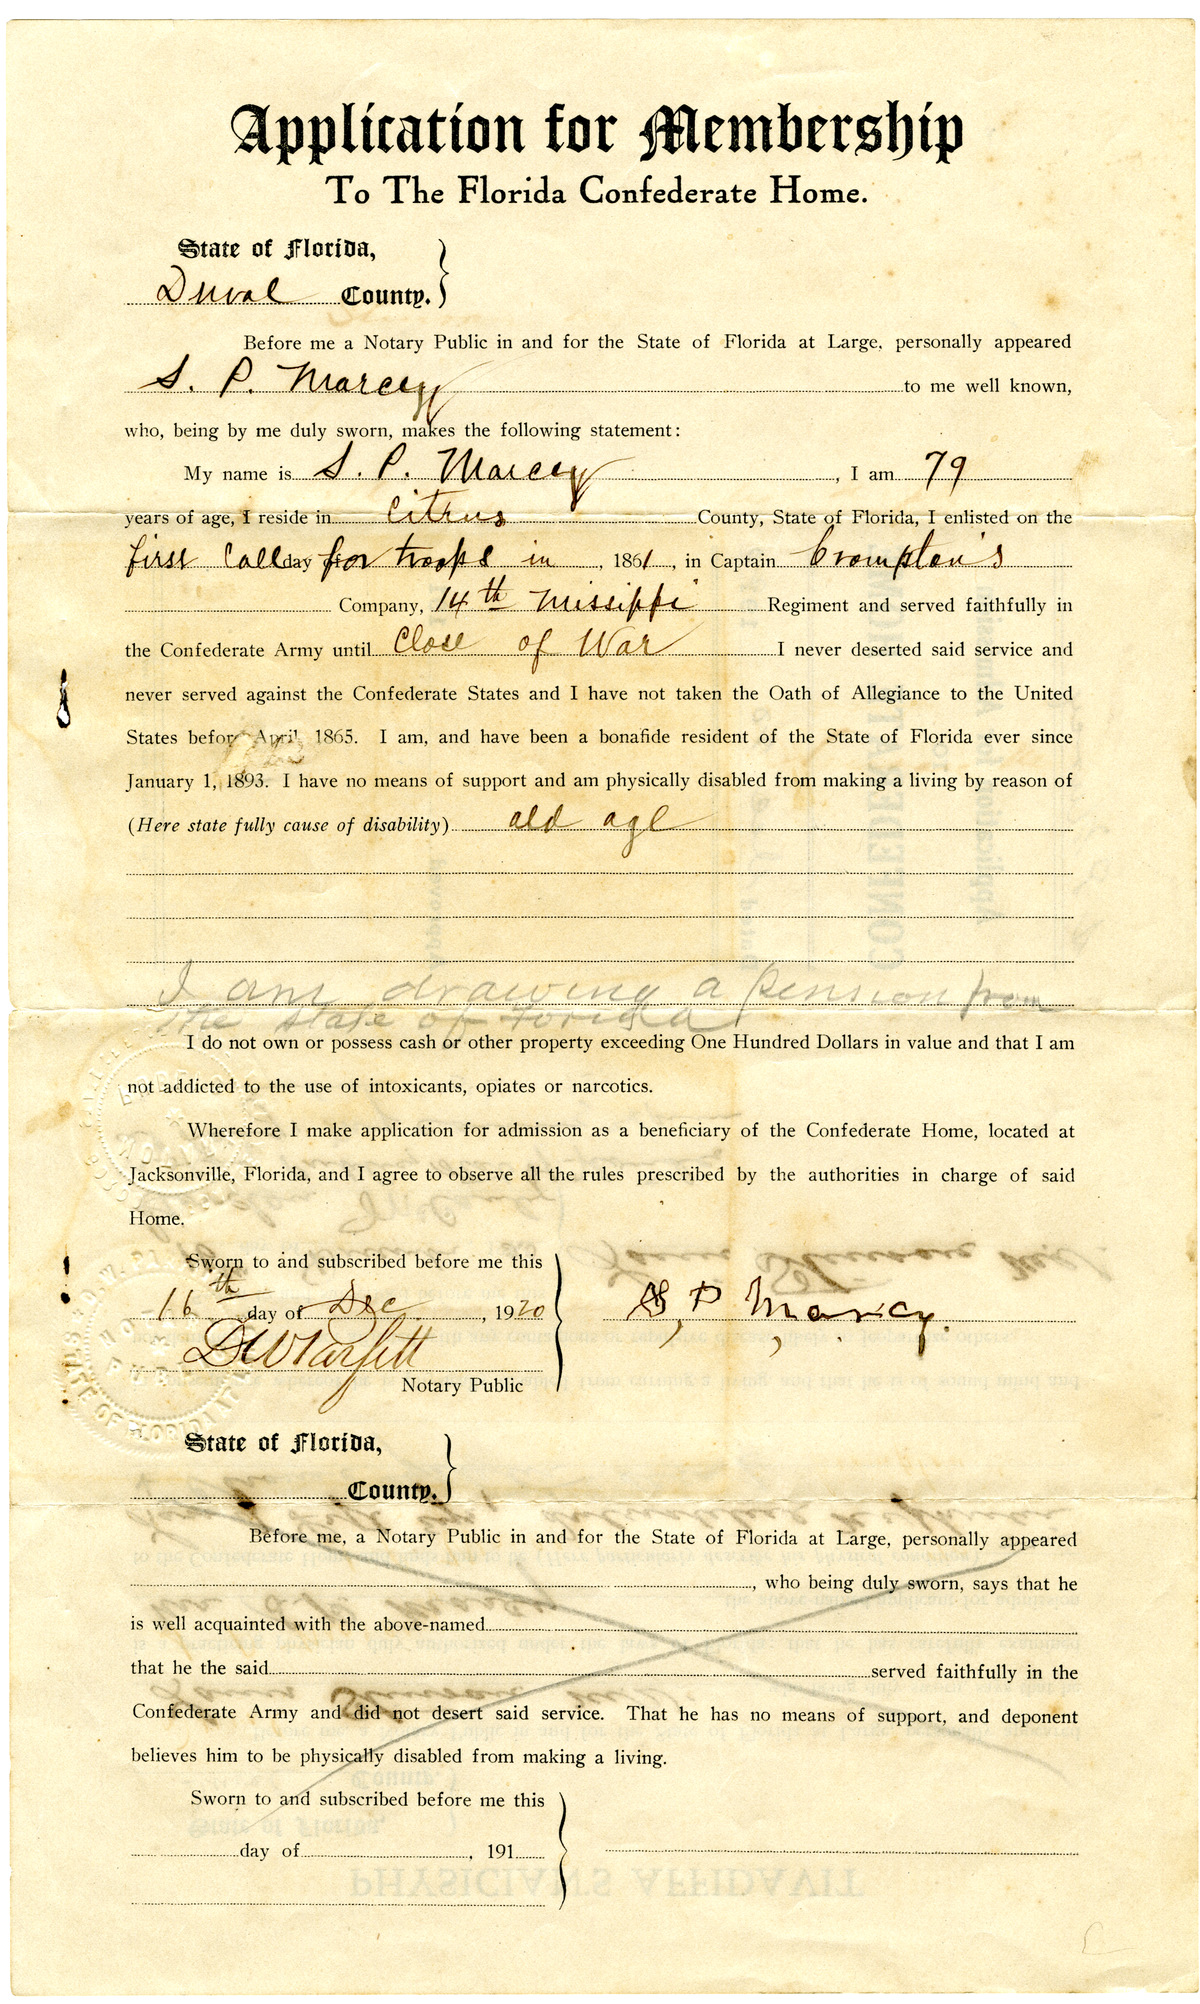 Application for Membership
To The Florida Confederate Home.
State of Florida,
Duval County.
Before me a Notary Public in and for the State of Florida at Large, personally appeared
S. P. Marcey to me well known,
who, being by me duly sworn, makes the following statement:
My name is S. P. Marcey, I am 79
years of age, I reside in Citrus County, State of Florida, I enlisted on the
first Call day of for troops in, 1861, in Captain Crompton's
Company, 14th Missippi Regiment and served faithfully in
the Confederate Army until Close of War I never deserted said service and
never served against the Confederate States and I have not taken the Oath of Allegiance to the United
States before April 1865. I am, and have been a bonafide resident of the State of Florida ever since
January 1, 1893. I have no means of support and am physically disabled from making a living by reason of
(Here state fully cause of disability) old age
I am drawing a Pension from
the State of Florida
I do not own or possess cash or other property exceeding One Hundred Dollars in value and that I am
not addicted to the use of intoxicants, opiates or narcotics.
Wherefore I make application for admission as a beneficiary of the Confederate Home, located at
Jacksonville, Florida, and I agree to observe all the rules prescribed by the authorities in charge of said
Home.
Sworn to and subscribed before me this
16th day of Dec, 1920
S, P, Marcy.
Notary Public
State of Florida,
County.
Before me, a Notary Public in and for the State of Florida at Large, personally appeared
, who being duly sworn, says that he
is well acquainted with the above-named
that he the said served faithfully in the
Confederate Army and did not desert said service. That he has no means of support, and deponent
believes him to be physically disabled from making a living.
Sworn to and subscribed before me this
day of, 191